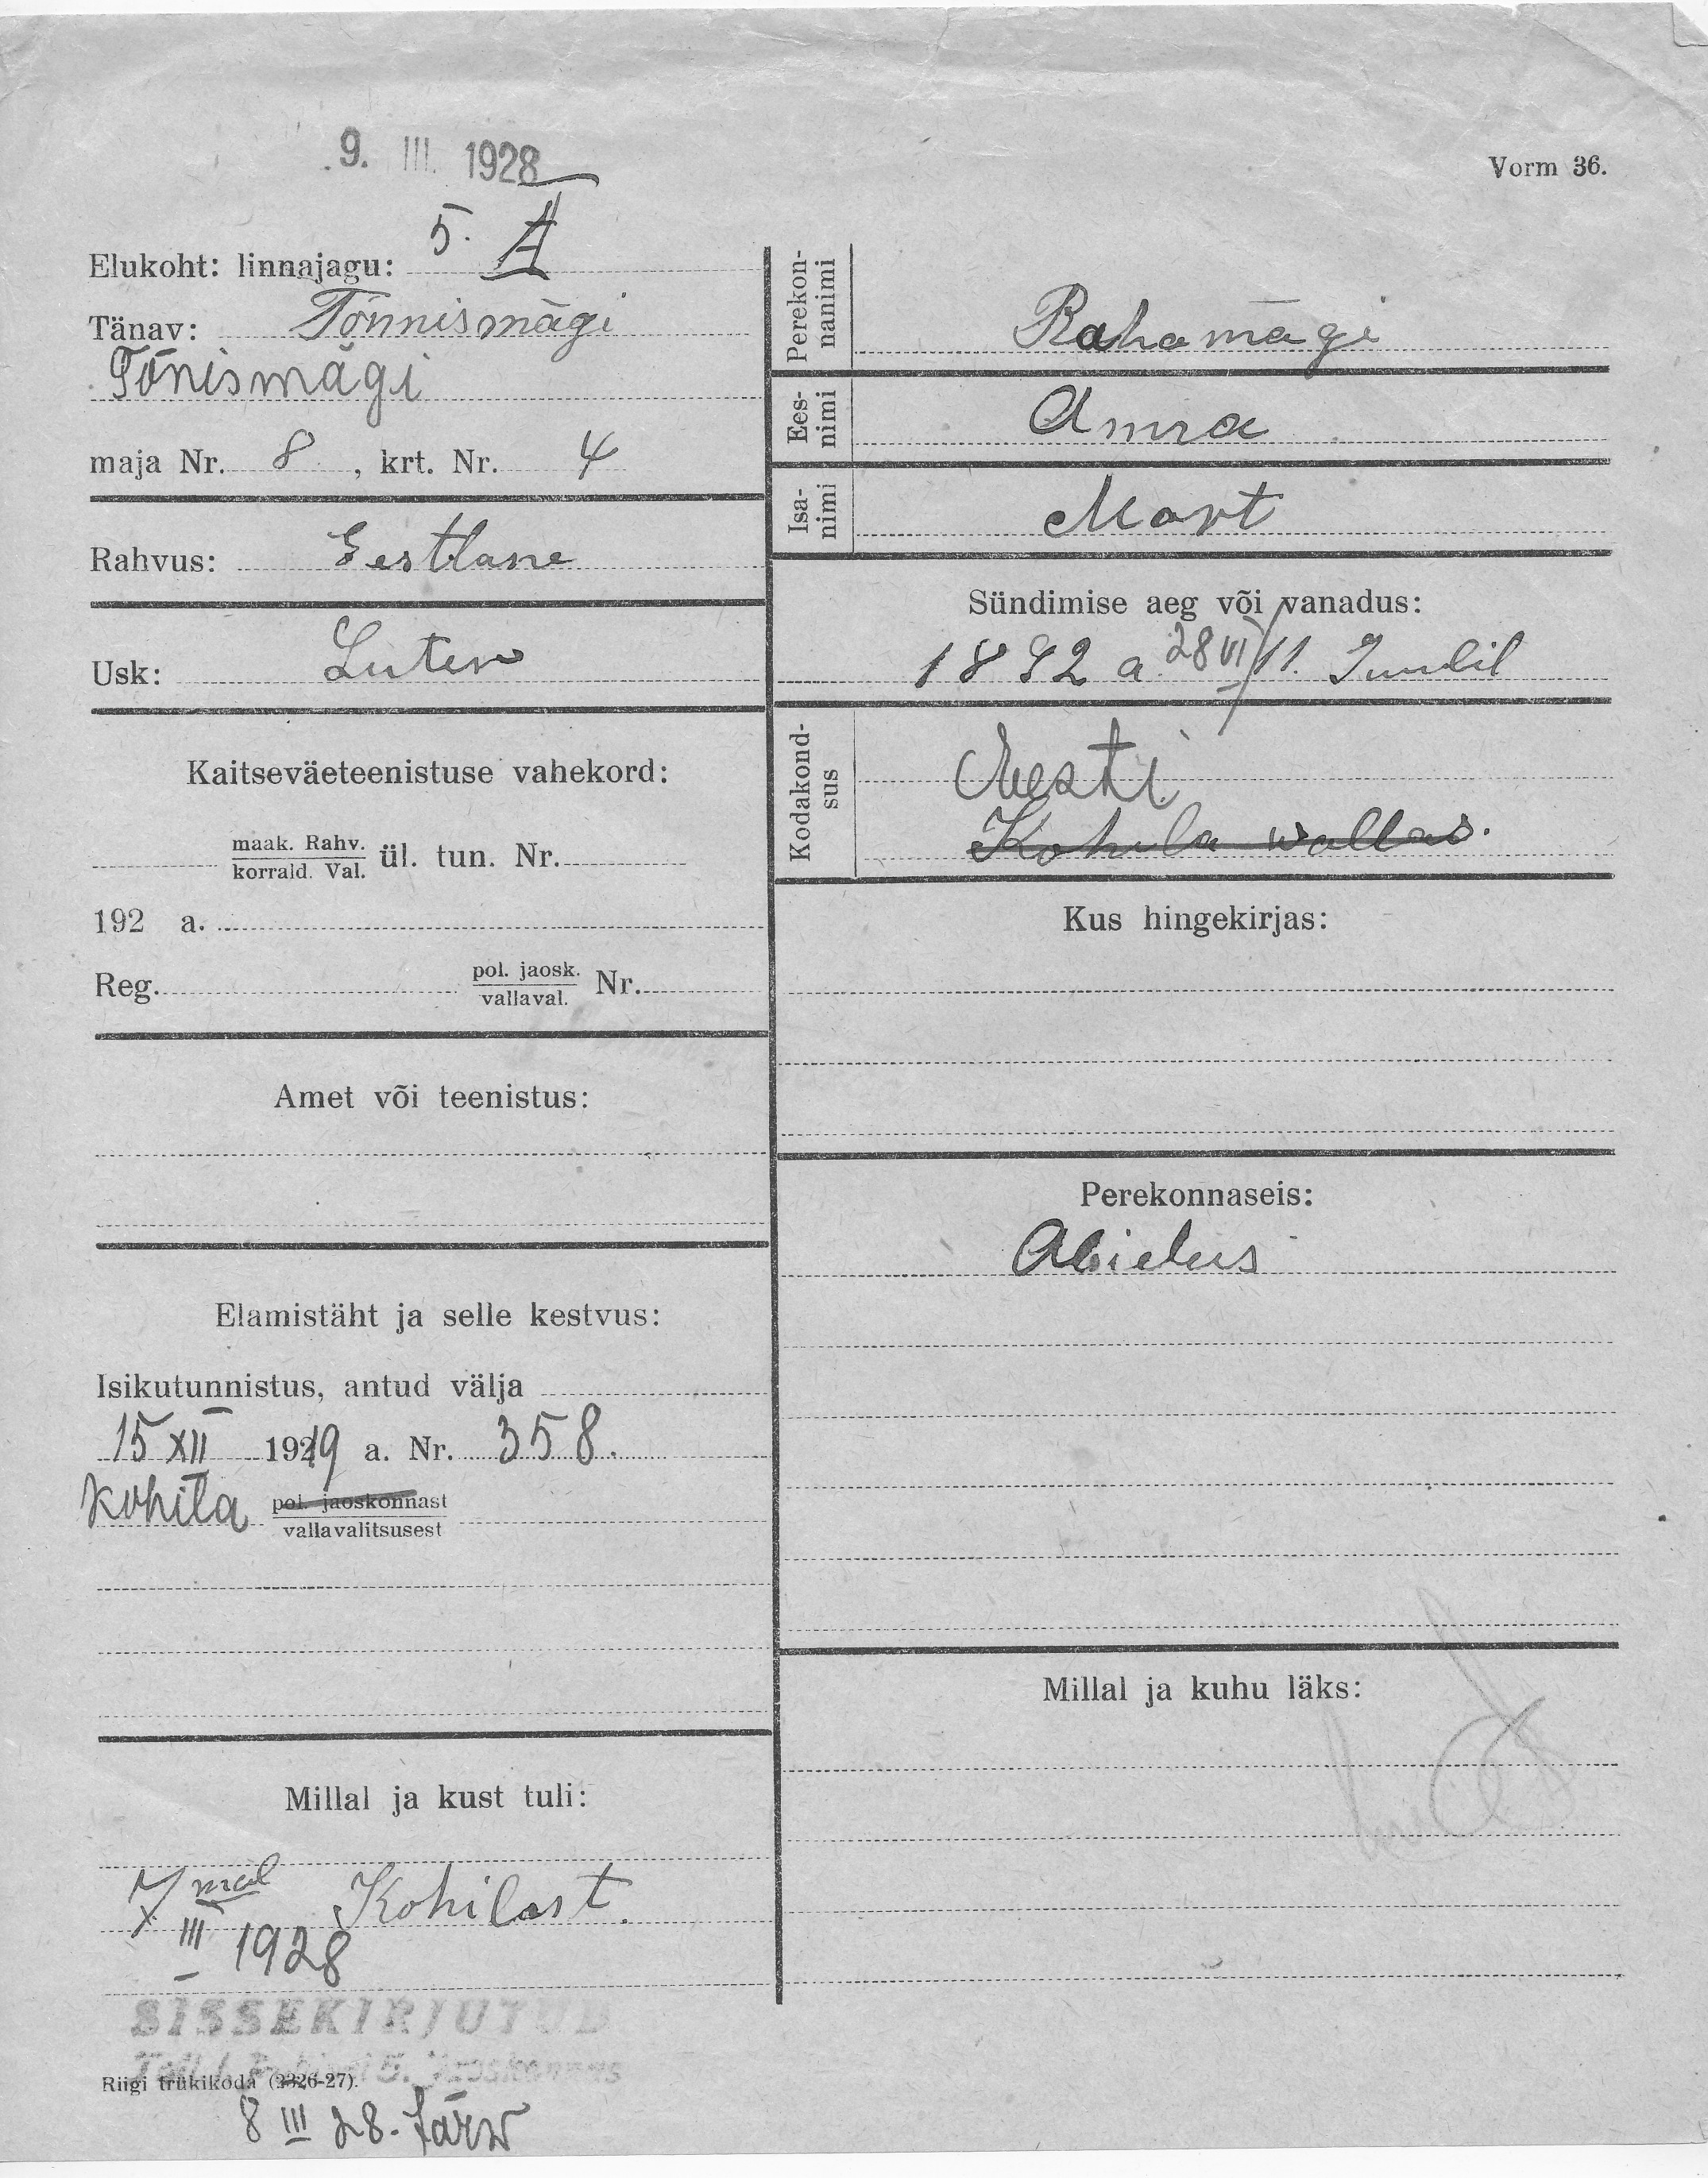 9. III. 1928
Vorm 36.
5. A
Elukoht: linnajagu:
Tänav: Tõnnismägi
Tõnismägi
maja Nr. 8, krt. Nr. 4
Rahvus: Eestlane
Usk: Luter
Kaitseväeteenistuse vahekord:
maak. Rahv.
korrald. Val.
ül. tun. Nr.
192 a.
Reg.
pol. jaosk.
vallaval.
Nr.
Amet või teenistus:
Elamistäht ja selle kestvus:
Isikutunnistus, antud välja
15 XII 1919 a. Nr. 358.
Kohila pol. jaoskonnast
vallavalitsusest
Millal ja kust tuli:
7 mal Kohilast.
III 1928
SISSEKIRJUTUD
Riigi trükikoda (2326-27).
8 III 28.
Perekon-
nanimi
Rahamägi
Ees-
nimi
Anna
Isa-
nimi
Mart
Sündimise aeg või vanadus:
1892 a. 28 VI/11. Juulil
Kodakond-
sus
Eesti
Kohila wallas.
Kus hingekirjas:
Perekonnaseis:
Abielus
Millal ja kuhu läks: